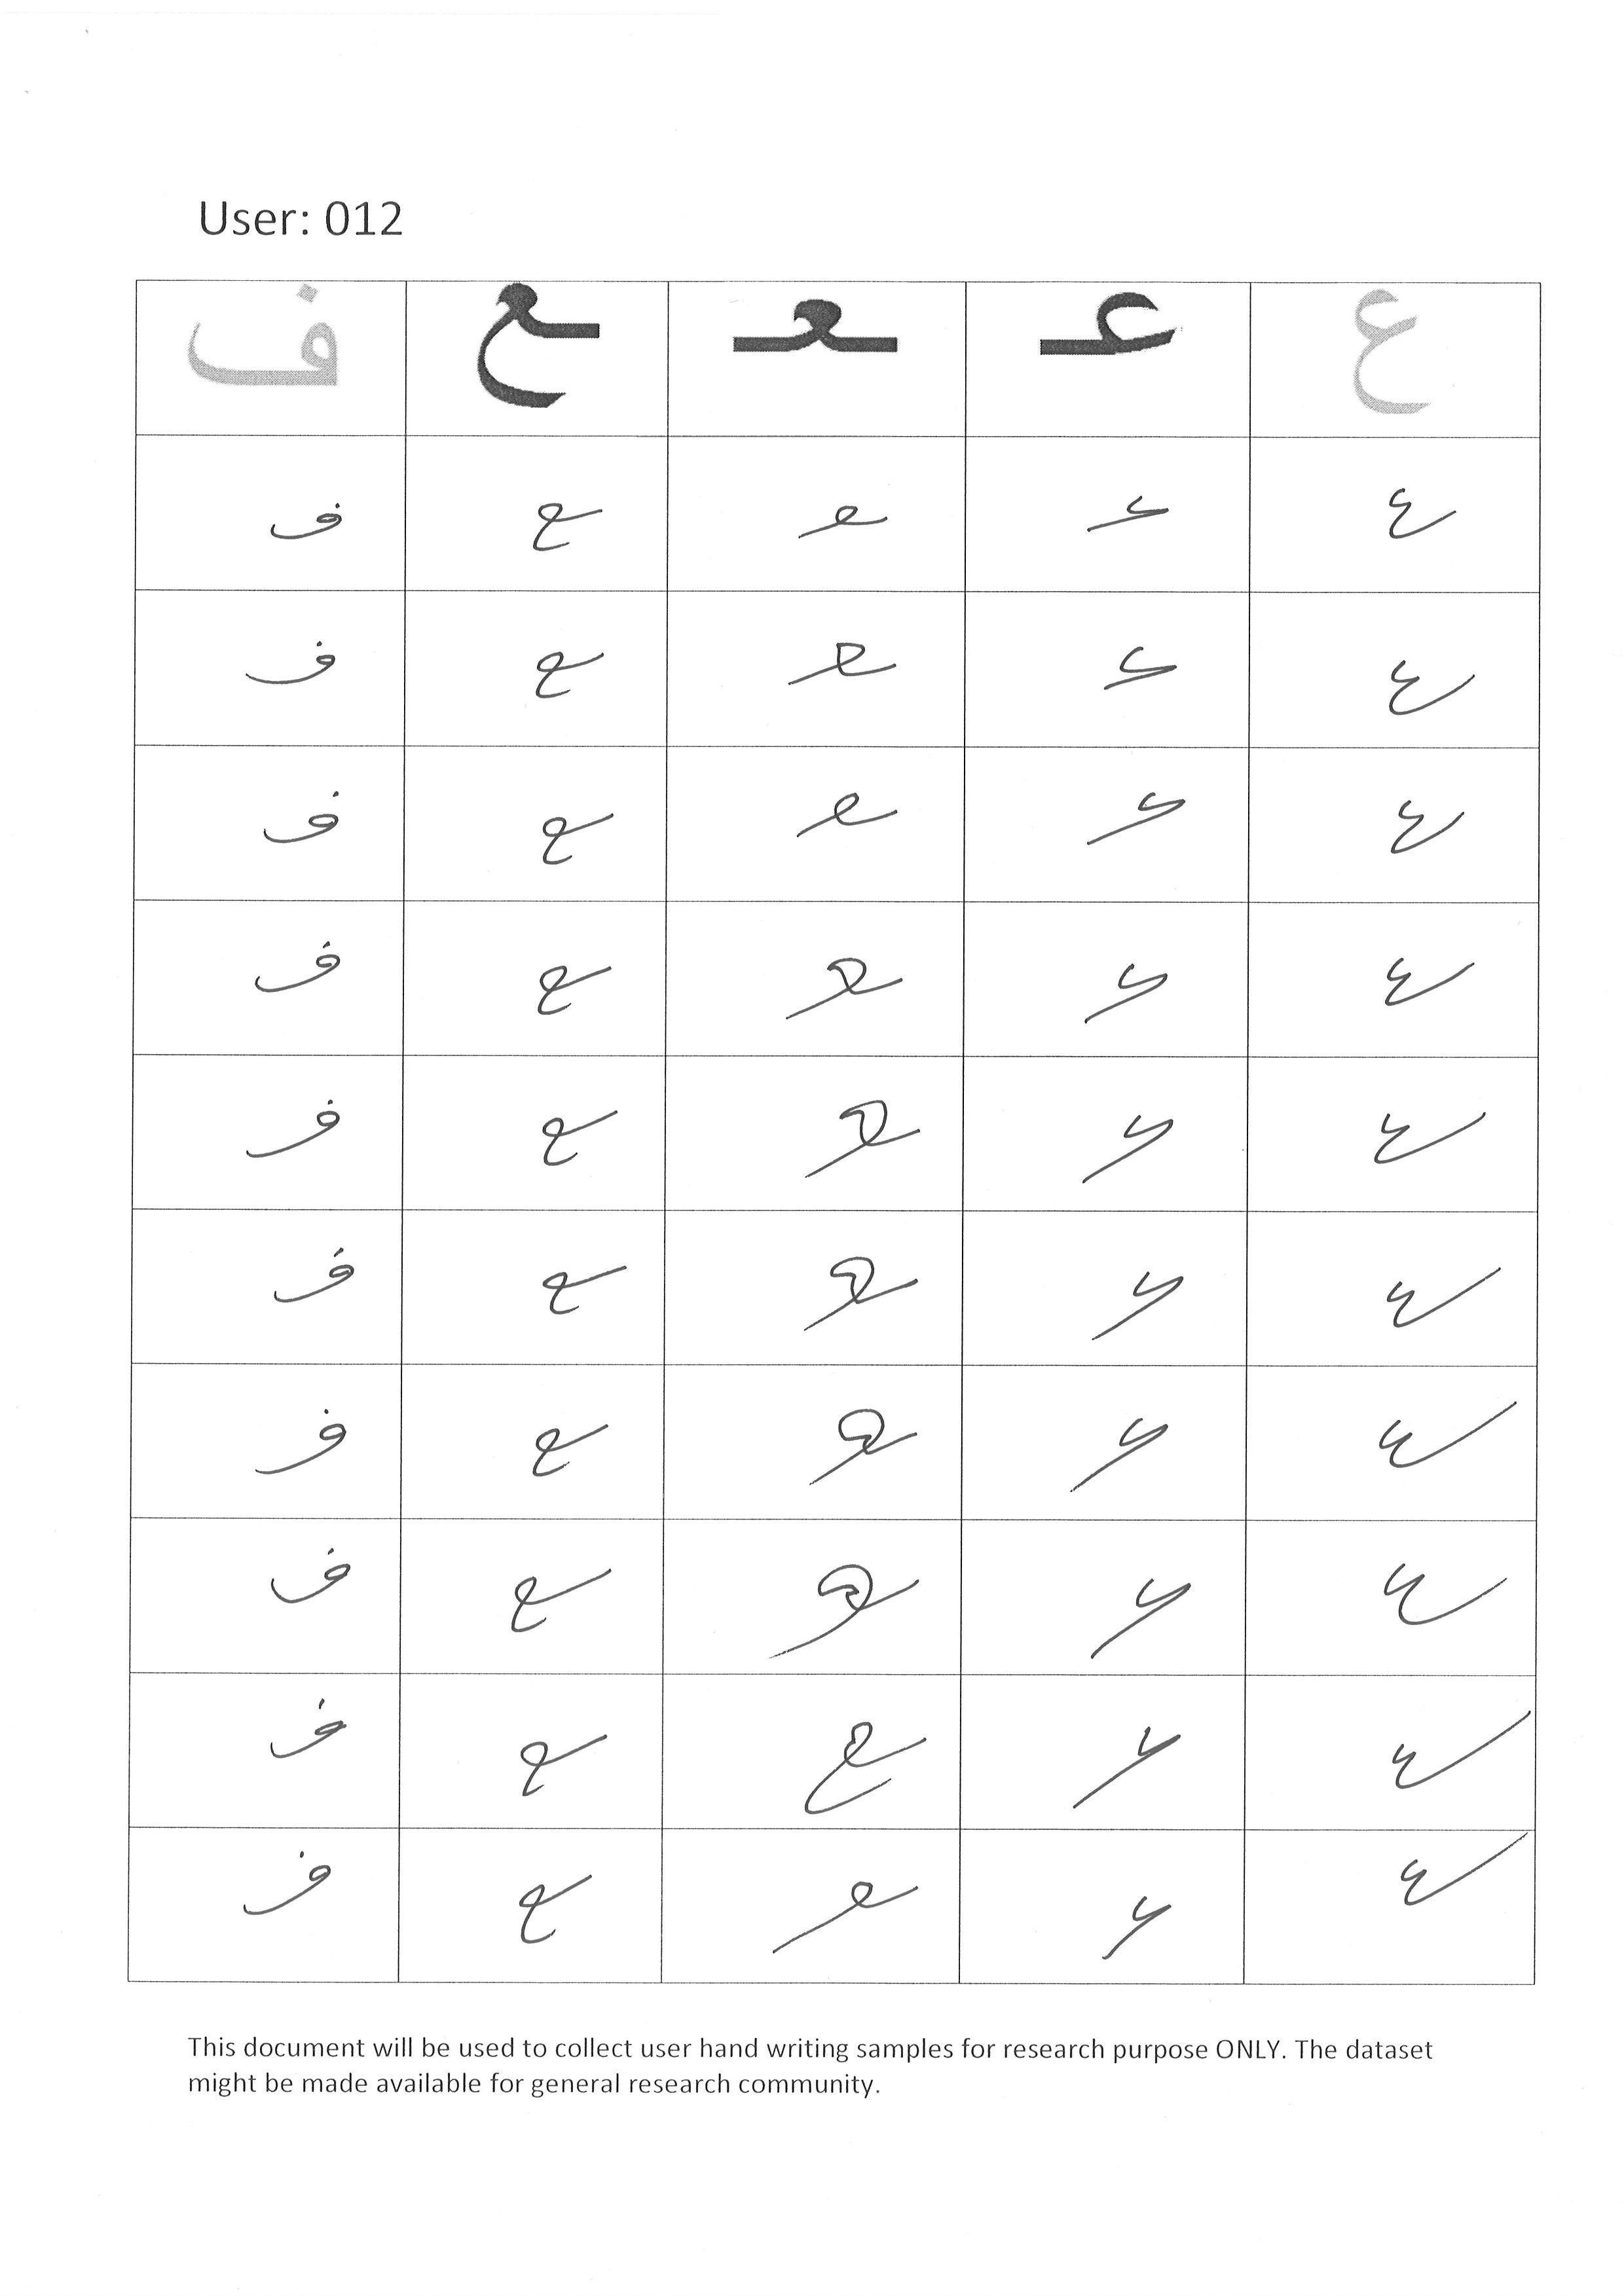 User: 012
ع عـ ـعـ ـع ف
ع عـ ـعـ ـع ف
ع عـ ـعـ ـع ف
ع عـ ـعـ ـع ف
ع عـ ـعـ ـع ف
ع عـ ـعـ ـع ف
ع عـ ـعـ ـع ف
ع عـ ـعـ ـع ف
ع عـ ـعـ ـع ف
ع عـ ـع ـع ف
ع عـ ـعـ ـع ف
This document will be used to collect user hand writing samples for research purpose ONLY. The dataset
might be made available for general research community.